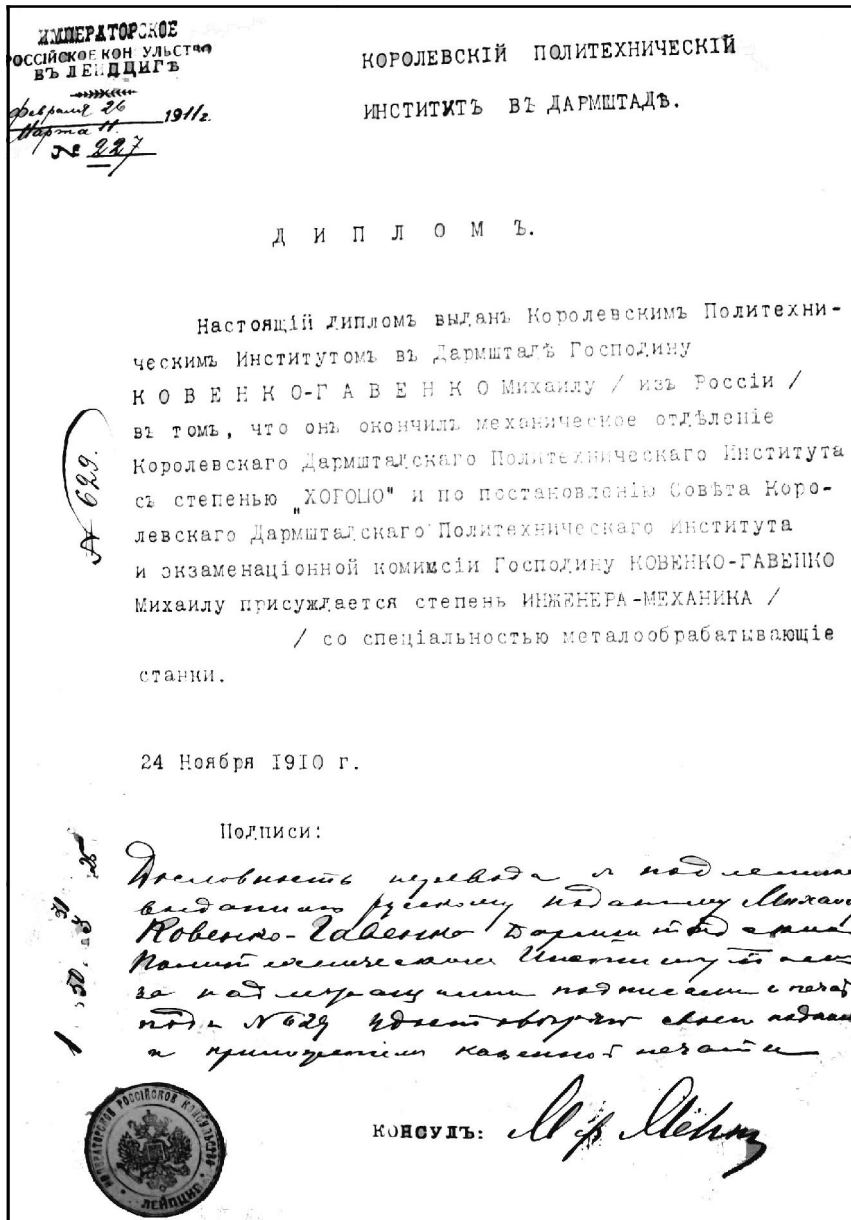 ИМПЕРАТОРСКОЕ
РОССІЙСКОЕ КОН УЛЬСТВО
ВЪ ЛЕЙПЦИГѢ
февраля 26
Марта 11. 1911г.
№ 227
КОРОЛЕВСКІЙ ПОЛИТЕХНИЧЕСКІЙ
ИНСТИТУТЪ ВЪ ДАРМШТАДѢ.
Д И П Л О М Ъ.
Настоящій дипломъ выданъ Королевскимъ Политехни-
ческимъ Институтомъ въ Дармштадѣ Господину
К О В Е Н К О-Г А В Е Н К О Михаилу / изъ Россіи /
въ томъ, что онъ окончилъ механическое отдѣленіе
Королевскаго Дармштадскаго Политехническаго Института
съ степенью „ХОРОШО" и по постановленію Совѣта Коро-
левскаго Дармштадскаго Политехническаго Института
и экзаменаціонной комиссіи Господину КОВЕНКО-ГАВЕНКО
Михаилу присуждается степень ИНЖЕНЕРА-МЕХАНИКА /
/ со спеціальностью металообрабатывающіе
станки.
№ 629.
24 Ноября 1910 г.
Подписи:
Дословность перевода с
выданному русскому подданному
Ковенко-Гавенко
за надлежащими подписями и
под № 629 удостоверяю своей
и приложением казенной печати
КОНСУЛЪ:
ИМПЕРАТОРСКОЕ РОССІЙСКОЕ КОНСУЛЬСТВО
ЛЕЙПЦИГ